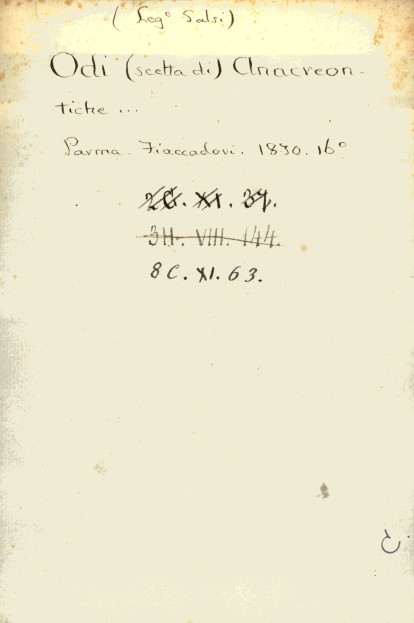 (Leg° Salsi)
Odi (scelta di) Anacreon-
tiche ...
Parma. Fiaccadori. 1830. 16°
2C. XI. 37.
3H. VIII. 144.
8C. XI. 63.